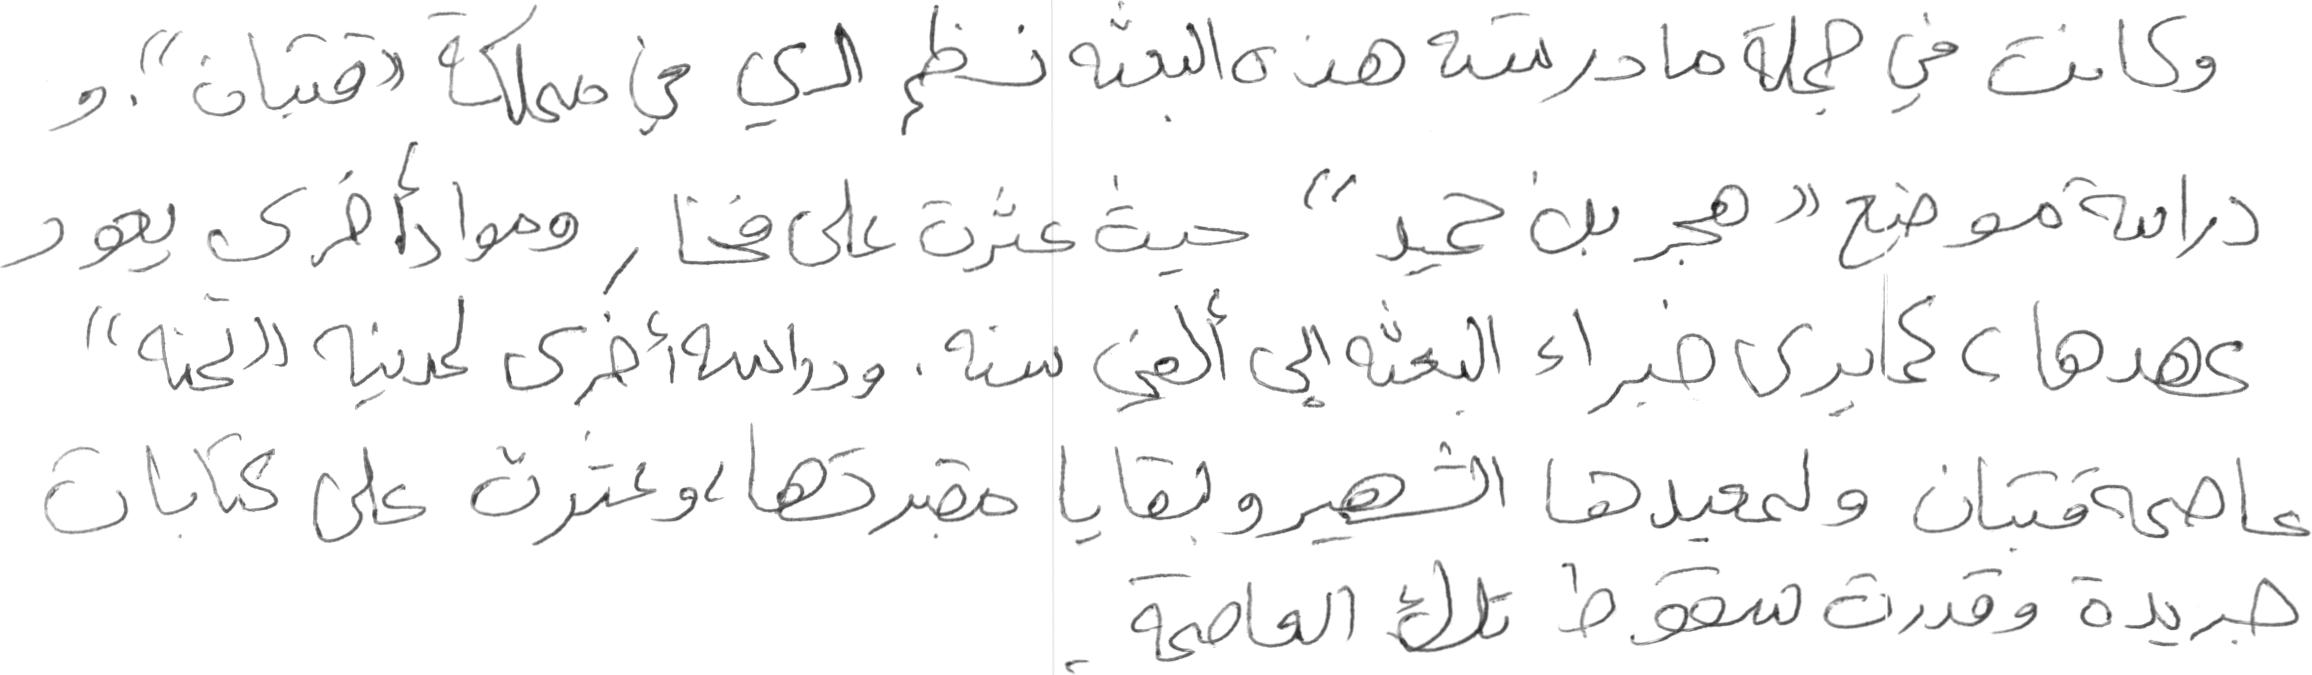 وكانت في جملة ما درسته هذه البعثه نظم الري في مملكة "قتبان". و
دراسة موضع "هجر بن حميد" حيث عثرت على فخار ومواد أخرى يعود
عهدها، كما يرى خبراء البعثه إلى ألفي سنه. ودراسه أخرى لمدينه "تمنه"
عاصمة قتبان ولمعبدها الشهير وبقايا مقبرتها، وعثرت على كتابات
جديدة وقدرت سقوط تلك العاصمة.